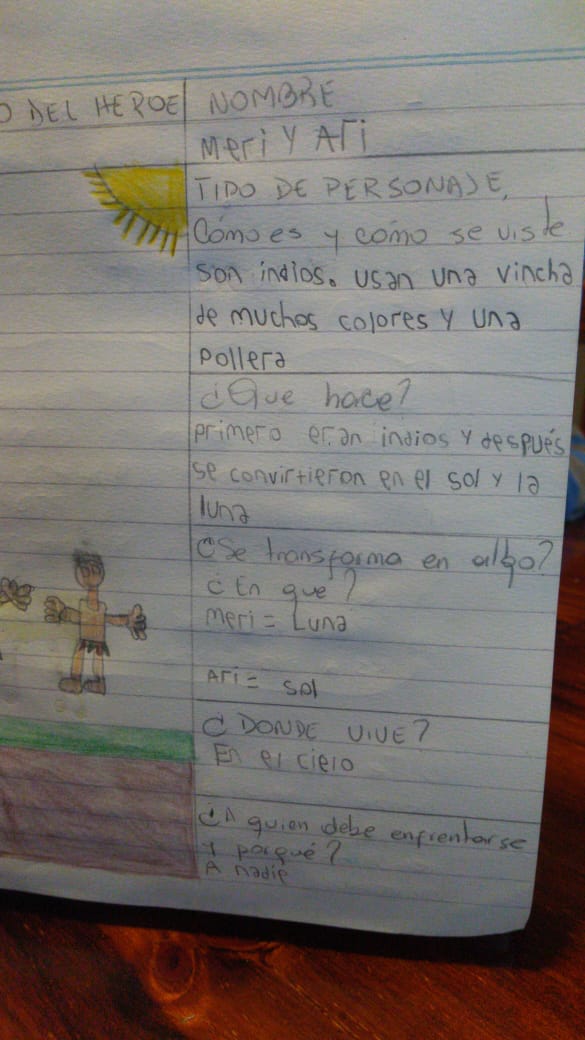 O DEL HEROE
NOMBRE
Meri y Ari
TIDO DE PERSONAJE,
Cómo es y cómo se viste
son indios. usan una vincha
de muchos colores y una
pollera
¿Que hace?
primero eran indios y después
se convirtieron en el sol y la
luna
¿Se transforma en algo?
¿En que?
Meri = Luna
Ari = sol
¿DONDE VIVE?
En el cielo
¿A quien debe enfrentarse
y porqué?
A nadie